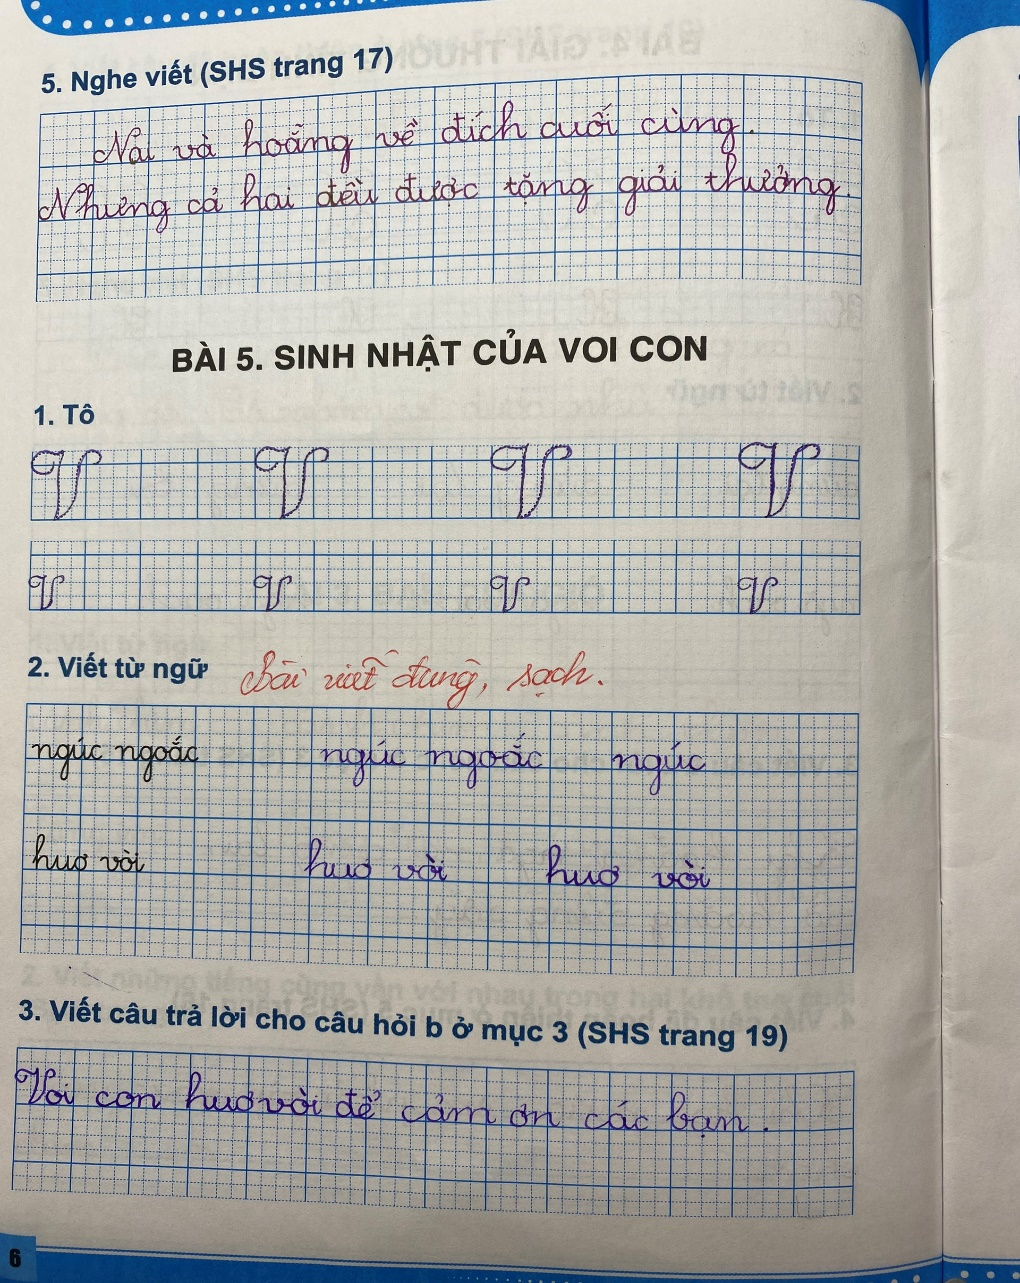 5. Nghe viết (SHS trang 17)
Nai và hoẵng về đích cuối cùng.
Nhưng cả hai đều được tặng giải thưởng.
BÀI 5. SINH NHẬT CỦA VOI CON
1. Tô
V V V V
v v v v
2. Viết từ ngữ Bài viết đúng, sạch.
ngúc ngoắc ngúc ngoắc ngúc
huơ vòi huơ vòi huơ vòi
3. Viết câu trả lời cho câu hỏi b ở mục 3 (SHS trang 19)
Voi con huơ vòi để cảm ơn các bạn.
6